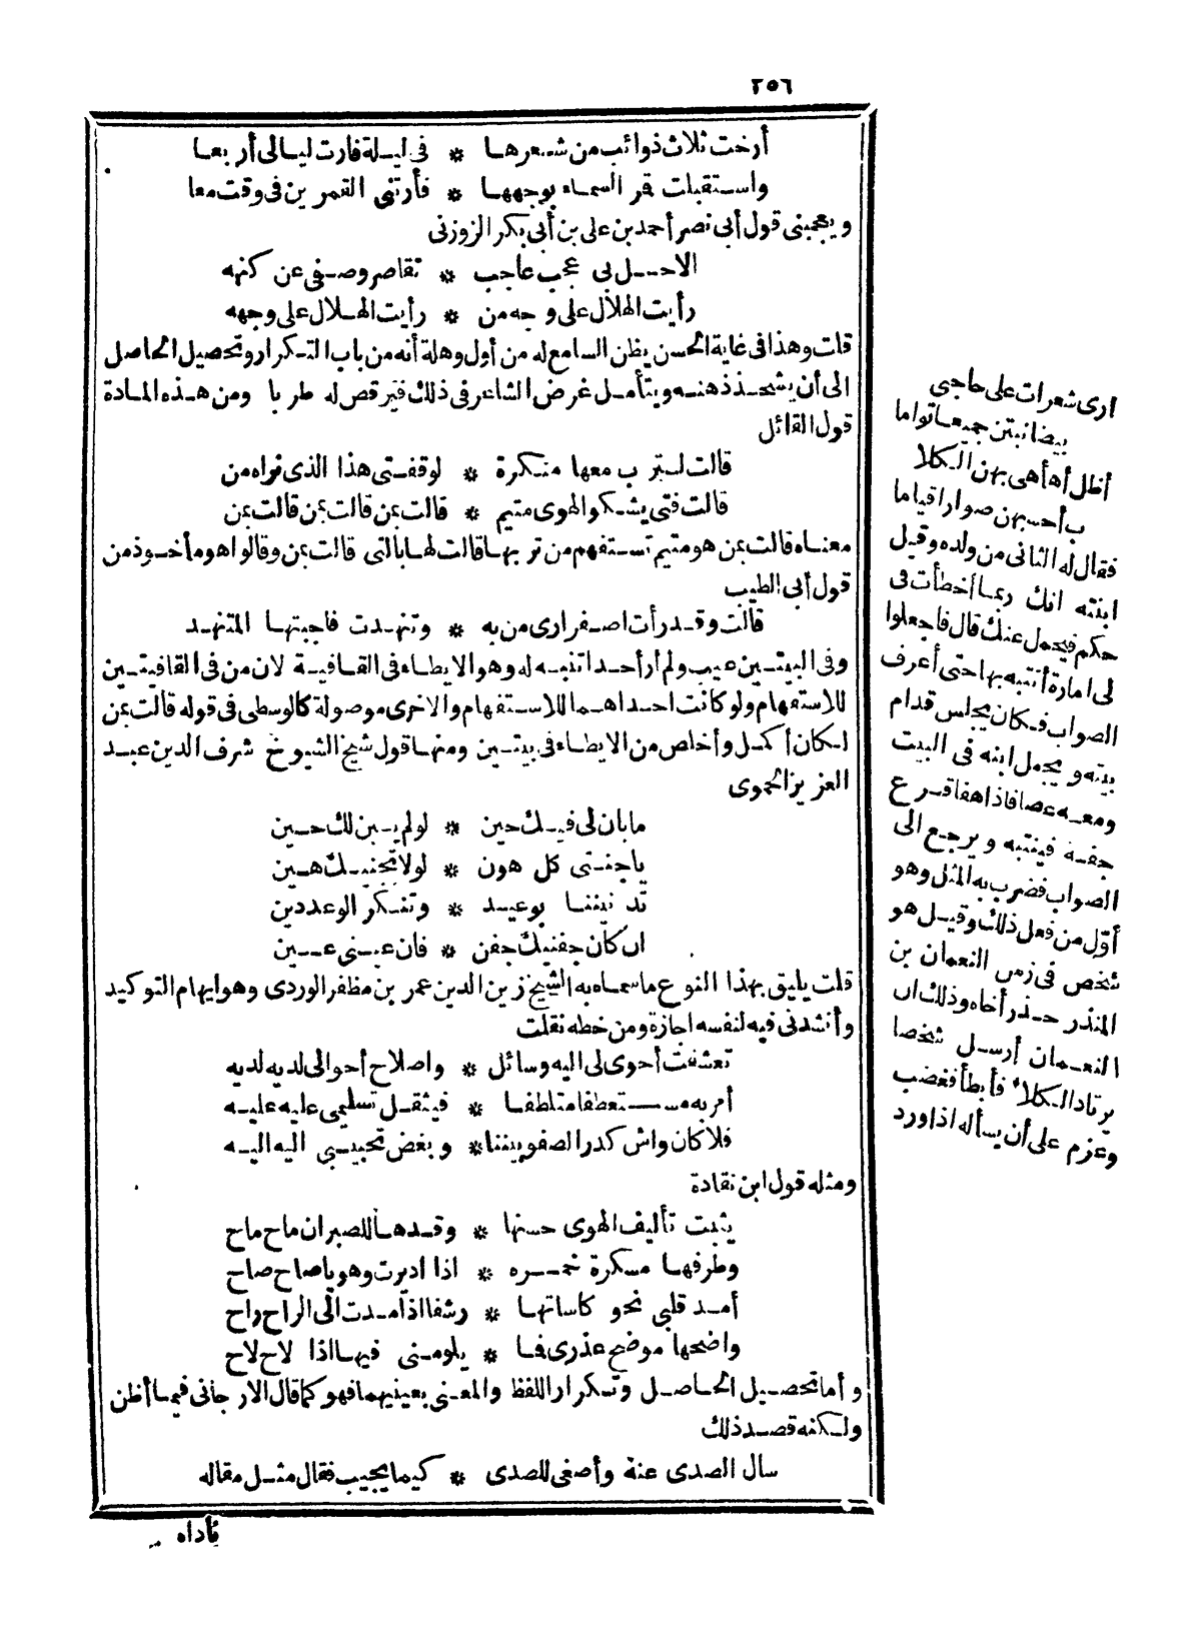 ٢٥٦
أرخت ثلاث ذوائب من شعرها * فى ليلة فارت ليالى أربعا
واستقبلت قمر السماء بوجهها * فأرتنى القمرين فى وقت معا
ويعجبنى قول أبى نصر أحمد بن على بن أبى بكر الزوزنى
الاحل بى عجب عاجب * تقاصر وصفى عن كنهه
رأيت الهلال على وجه من * رأيت الهلال على وجهه
قلت وهذا فى غاية الحسن يظن السامع له من أول وهلة أنه من باب التكرار وتحصيل الحاصل
الى أن يشحذ ذهنه ويتأمل غرض الشاعر فى ذلك فيرقص له طربا ومن هذه المادة
قول القائل
قالت لترب معها منكرة * لوقفتى هذا الذى نراه من
قالت فتى يشكو الهوى متيم * قالت بمن قالت بمن قالت بمن
معناه قالت بمن هو متيم تستفهم من تربها قالت لها بالتى قالت بمن وقالوا هو مأخوذ من
قول أبى الطيب
قالت وقد رأت اصفرارى من به * وتنهدت فاجبتها المتنهد
وفى البيتين عيب ولم أر أحدا تنبه له وهو الايطاء فى القافية لان من فى القافيتين
للاستفهام ولو كانت احداهما للاستفهام والاخرى موصولة كالوسطى فى قوله قالت بمن
لكان أكمل وأخلص من الايطاء فى بيتين ومنها قول شيخ الشيوخ شرف الدين عبد
العزيز الحموى
مابان لى فيك حين * لولم يبن لك حين
ياجنتى كل هون * لولا تجنيك هين
تديننا بوعيد * وتنكر الوعددين
ان كان جفنيك جفن * فان عينى عين
قلت يليق بهذا النوع ماسماه به الشيخ زين الدين عمر بن مظفر الوردى وهو ايهام التوكيد
وأنشدنى فيه لنفسه اجازة ومن خطه نقلت
تعشقت أحوى لى اليه وسائل * واصلاح أحوالى لديه لديه
أمر به مستعطفا متلطفا * فيثقل تسليمى عليه عليه
فلا كان واش كدر الصفو بيننا * وبغض تحبيبى اليه اليه
ومثله قول ابن نقادة
يثبت تأليف الهوى حسنها * وقدها للصبر ان ماح ماح
وطرفها مسكرة خمره * اذا ادبرت وهو ياصاح صاح
أمد قلبى نحو كاساتها * رشفا اذا مدت الى الراح راح
واضحها موضح عذرى فما * يلومنى فيها اذا لاح لاح
وأما تحصيل الحاصل وتكرار اللفظ والمعنى بعينيهما فهو كما قال الارجانى فيما أظن
ولكنه قصد ذلك
سال الصدى عنه وأصغى للصدى * كيما يجيب فقال مثل مقاله
ارى شعرات على حاجبى
بيضا نبتن جميعا تواما
أظل أهاهى بهن الكلا
ب أحسبهن صوارا قياما
فقال له الثانى من ولده وقيل
ابنته انك ربما أخطأت فى
حكم فيحمل عنك قال فاجعلوا
لى امارة أنتبه بها حتى أعرف
الصواب فكان يجلس قدام
بيته ويجعل ابنه فى البيت
ومعه عصا فاذا هفا قرع
جفنة فينتبه ويرجع الى
الصواب فضرب به المثل وهو
أول من فعل ذلك وقيل هو
شخص فى زمن النعمان بن
المنذر حذر أخاه وذلك ان
النعمان أرسل شخصا
يرتاد الكلأ فأبطأ فغضب
وعزم على أن يسأله اذا ورد